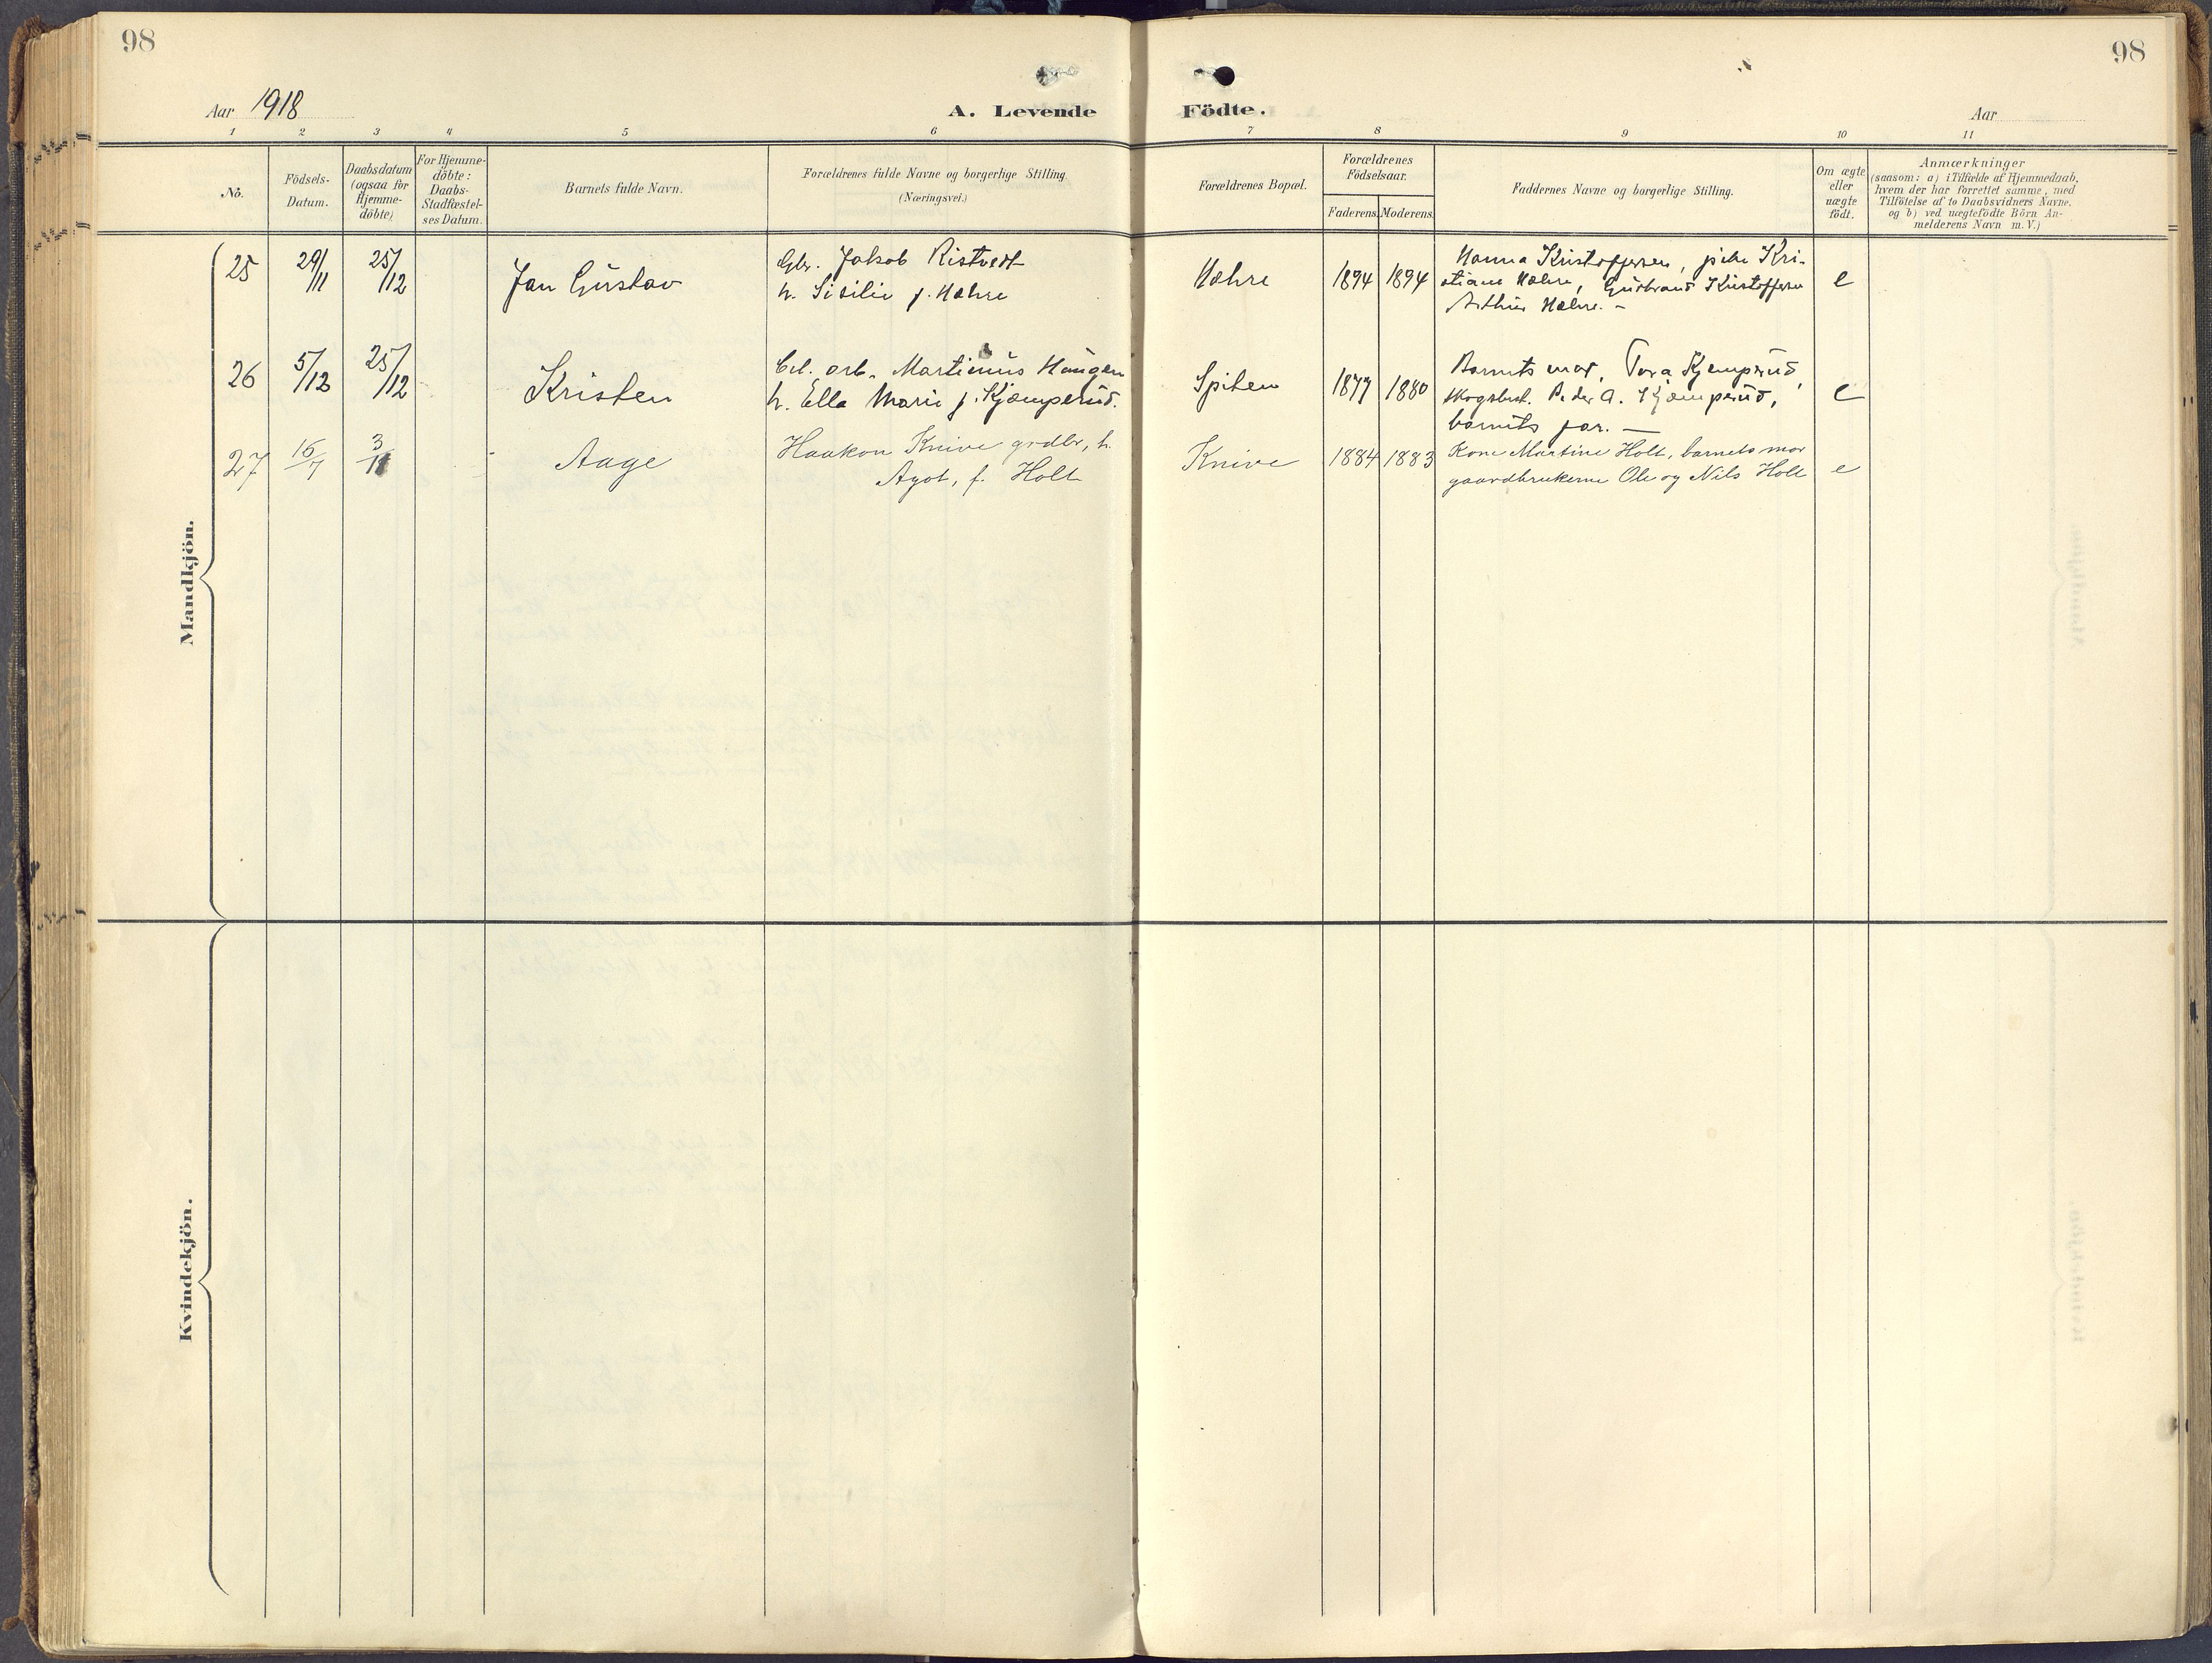 98
98
Aar 1918
A. Levende Födte.
Aar
1 2 3 4 5 6 7 8 9 10 11
No.
Födsels-
Datum.
Daabsdatum
(ogsaa for
Hjemme-
döbte)
For Hjemme-
döbte:
Daabs-
Stadfæstel-
ses Datum.
Barnets fulde Navn.
Forældrenes fulde Navne og borgerlige Stilling.
(Næringsvei.)
Forældrenes Bopæl.
Forældrenes
Födselsaar.
Faderens. Moderens.
Faddernes Navne og borgerlige Stilling.
Om ægte
eller
uægte
födt.
Anmærkninger
(saasom: a) i Tilfælde af Hjemmedaab,
hvem der har forrettet samme, med
Tilföielse af to Daabsvidners Navne.
og b) ved uægtefödte Börn An-
melderens Navn m. V.)
Mandkjön.
25 29/11 25/12 Jan Gustav
Gbr. Jakob Ristvedt
h. Sisilie f. Hæhre
Hæhre 1894 1894
Hanna Kristoffersen, pike Kri-
stiane Hæhre, Gudbrand Kristoffersen
Arthur Hæhre. -
e
26 5/12 25/12 Kristen
Cel. arb. Martinius Haugen
h. Ella Marie f. Kjemperud.
Spiten 1877 1880
Barnets mor, Tora Kjemperud,
Skogsbest. Peder A. Kjemperud,
barnets far. —
e
27 16/7 3/11 Aage
Haakon Knive grdbr, h.
Agot, f. Holt
Knive 1884 1883
Kone Martine Holt, barnets mor
gaardbrukerne Ole og Nils Holt
e
Kvindekjön.